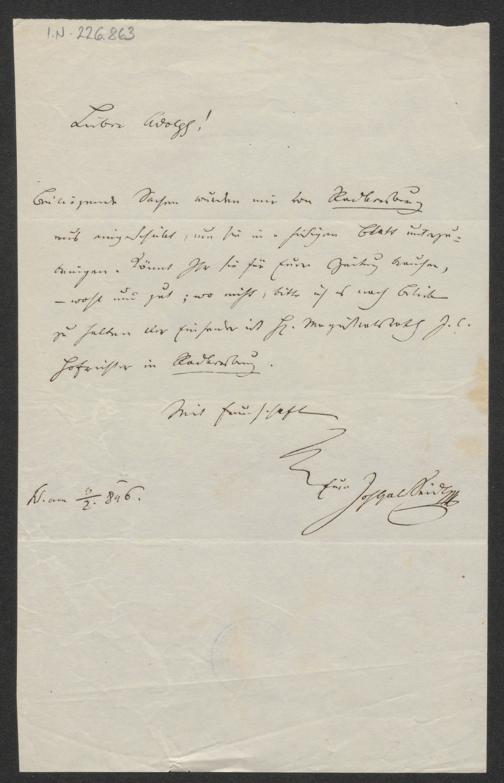 I.N. 226.863
Lieber Adolph!
Beiliegende Sachen wurden mir von Radkersburg
aus eingeschickt, um sie in e. hiesigen Blatt unterzu-
bringen. Könnt Ihr sie für Eure Zeitung brauchen,
– wohl und gut; wo nicht, bitte ich es nach Belieben
zu halten. Der Einsender ist H. Magistratsrath J. C.
Hofrichter in Radkersburg.
Mit Freundschaft
Euer Joh Gab Seidl
W. am 846.